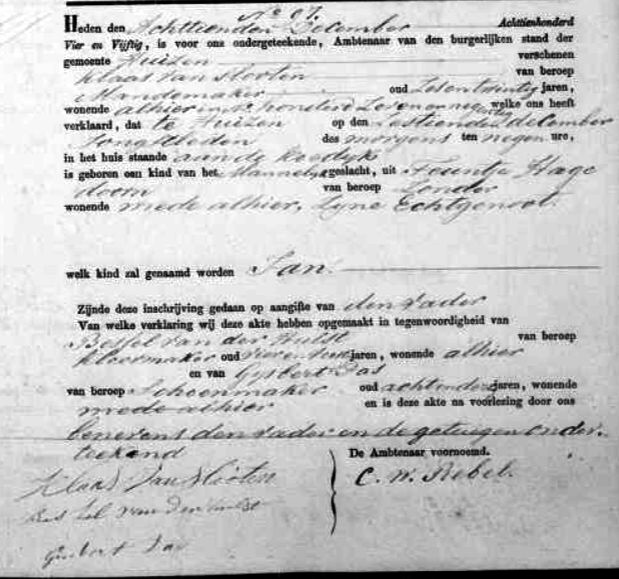 No 97.
Heden den Achttienden December Achttienhonderd
Vier en Vijftig, is voor ons ondergeteekende, Ambtenaar van den burgerlijken stand der
gemeente Huizen verschenen
Klaas van Slooten van beroep
Mandemaker oud Zesentwintig jaren,
wonende alhier honderd Zevenennegentig welke ons heeft
verklaard, dat te Huizen op den Zestiende december
Jongstleden des morgens ten negen ure,
in het huis staande aan de
is geboren een kind van het Mannelijk geslacht, uit Fentje Hage
doorn van beroep Zonder
wonende mede alhier, Zyne Echtgenoot.
welk kind zal genaamd worden Jan.
Zijnde deze inschrijving gedaan op aangifte van den vader
Van welke verklaring wij deze akte hebben opgemaakt in tegenwoordigheid van
Bessel van der Hulst van beroep
oud jaren, wonende alhier
en van Gysbert Das
van beroep Schoenmaker oud jaren, wonende
mede alhier en is deze akte na voorlezing door ons
benevens den vader en de getuigen onder
teekend
De Ambtenaar voornoemd.
Klaas Van Slooten
C. W. Rebel.
Bessel van der Hulst
Gusbert Das